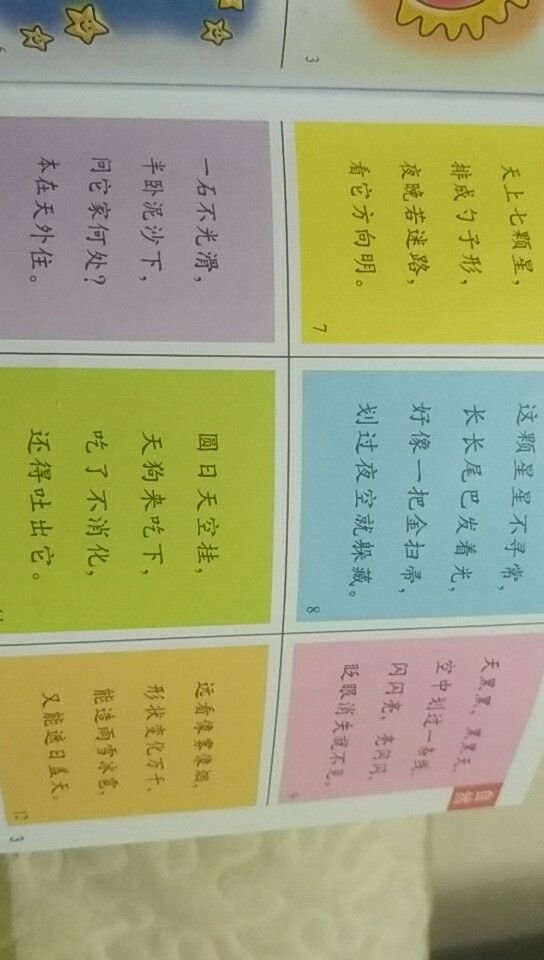 3
6
天上七颗星，
排成勺子形，
夜晚若迷路，
看它方向明。
7
这颗星星不寻常，
长长尾巴发着光，
好像一把金扫帚，
划过夜空就躲藏。
8
自然
天黑黑，黑黑天，
空中划过一条线，
闪闪亮，亮闪闪，
眨眼消失就不见。
9
一石不光滑，
半卧泥沙下，
问它家何处？
本在天外住。
圆日天空挂，
天狗来吃下，
吃了不消化，
还得吐出它。
11
远看像雾像烟，
形状变化万千，
能造雨雪冰雹，
又能遮日盖天。
12
3